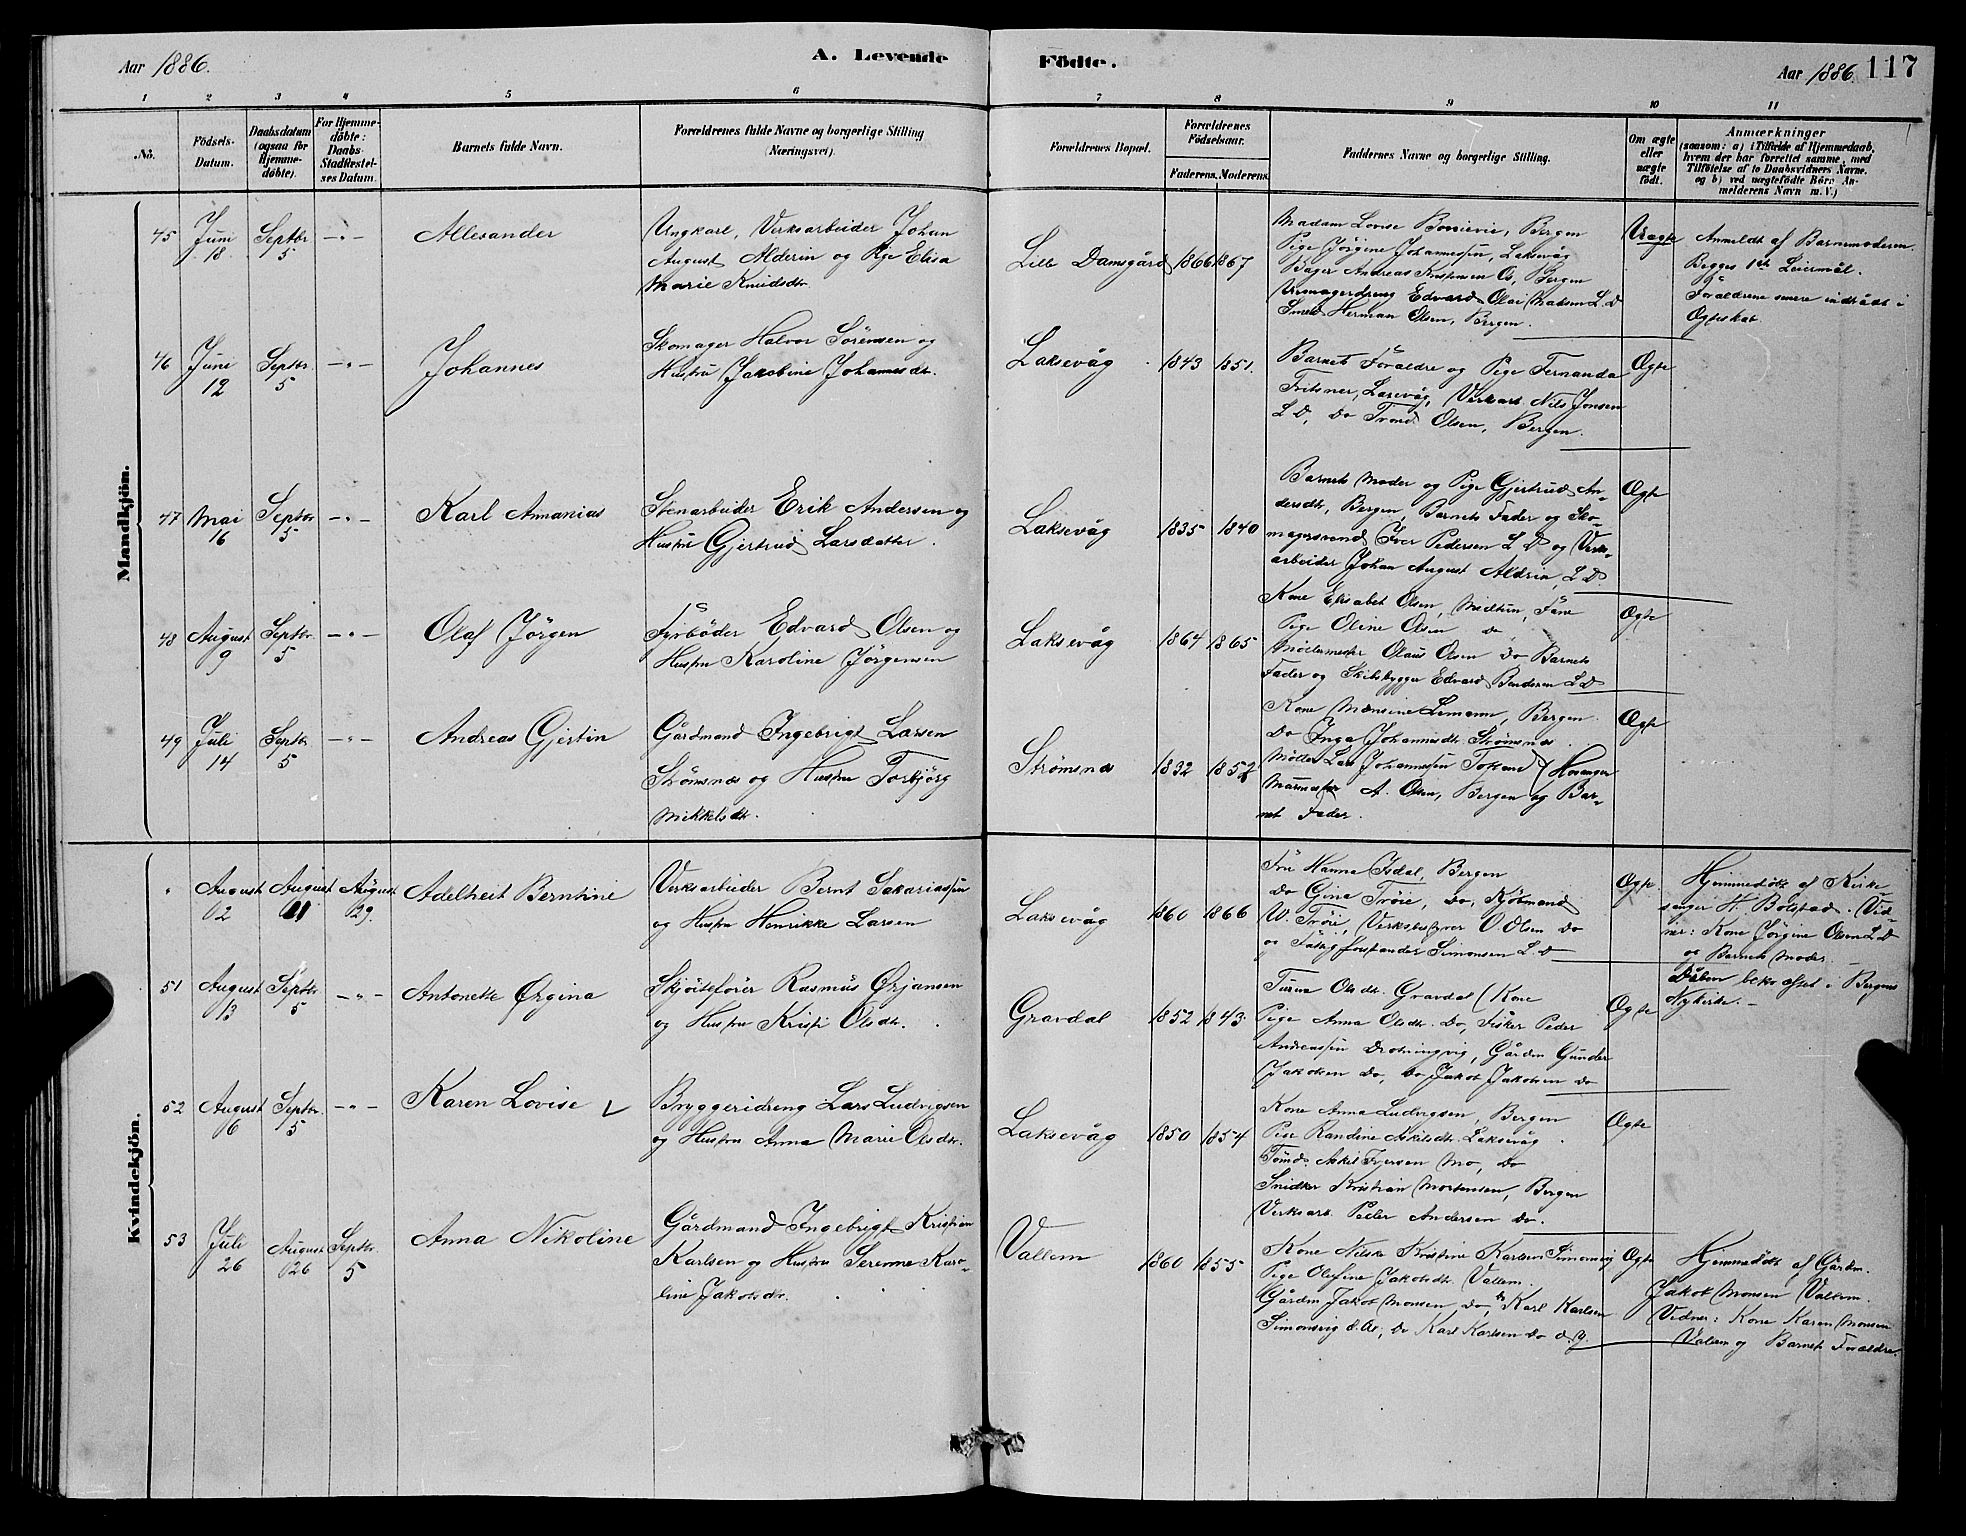 Aar 1886.
A. Levende
Födte.
Aar 1886.
117
1
2
3
4
5
6
7
8
9
10
11
No.
Födsels-
Datum.
Daabsdatum
(ogsaa for
Hjemme-
döbte).
For Hjemme-
döbte:
Daabs-
Stadfæstel-
ses Datum.
Barnets fulde Navn.
Forældrenes fulde Navne og borgerlige Stilling
(Næringsvei).
Forældrenes Bopæl.
Forældrenes
Födselsaar.
Faderens.
Moderens.
Faddernes Navne og borgerlige Stilling.
Om ægte
eller
uægte
födt.
Anmærkninger
(saasom: a) i Tilfælde af Hjemmedaab,
hvem der har forrettet samme, med
Tilföielse af to Daabsvidners Navne.
og b) ved uægtefödte Börn An-
melderens Navn m. V.)
Mandkjön.
45
Juni
18
Septbr
5
-"-
Allexander
Ungkarl, Verksarbeider Johan
August Alderin og Pige Elisa
Marie Knudsdtr
Lille Damsgård
1866
1867
Madam Lovise Bossievie, Bergen
Pige Jörgine Johannessen, Laksevåg
Bager Andreas Kristensen Os, Bergen
Urmagerdreng Edvard Olai Madsen L. D
Smed Herman Olsen, Bergen.
Uægte
Anmeldt af Barnemoderen.
Begges 1ste Leiermål.
Foraldrene senere indtrådt i
Ægteskab.
46
Juni
12
Septbr.
5
-"-
Johannes
Skomager Halvor Sörensen og
Hustru Jakobine Johannesdtr.
Laksevåg
1843
1851.
Barnets Foraldre og Pige Fernanda
Fritsner, Laxevåg, Verksarb. Nils Jonsen
L D, Do Trond Olsen, Bergen.
Ægte
47
Mai
16
Septbr
5
-"-
Karl Ananias
Stenarbeider Erik Andersen og
Hustru Gjertrud Larsdatter.
Laksevåg
1835
1840
Barnets Moder og Pige Gjertrud An-
dersdtr, Bergen, Barnets Fader og Sko-
magersvend Iver Pedersen L D og Verks-
arbeider Johan August Aldrin, L D.
Ægte
48
August
9
Septbr.
5
-"-
Olaf Jörgen
Fyrböder Edvard Olsen og
Hustru Karoline Jörgensen
Laksevåg
1864
1865
Kone Elisabet Olsen, Midtun, Fane
Pige Oline Olsen do
Möllemester Olaus Olsen Do Barnets
Fader og Skibsbygger Edvard Bendixen L D
Ægte
49
Juli
14
Septbr
5
-"-
Andreas Gjertin
Gårdmand Ingebrigt Larsen
Strömsnæs og Hustru Torbjörg
Mikkelsdtr.
Strömsnæs
1832
1852
Kone Monsine Lemann, Bergen.
Do Inga Johannesdtr. Strömsnæs.
Möller Lars Johannessen Hosanger
A. Olsen, Bergen og Bar-
nets Fader.
Ægte
Kvindekjön.
"
August
2
August
21
August
29.
Adelheit Berntine
Verksarbeider Bernt Sakariassen
og Hustru Henrikke Larsen
Laksevåg
1860
1866
Fru Hanna Isdal, Bergen
do Gina Tröie, Do, Kjöbmand
W. Tröie, Verksbestyrer O Olsen Do
og Forstander Simonsen L. D
Ægte
Hjemmedöbt af Kirke
sanger H. Bolstad. Vid-
ner: Kone Jörgine Olsen L D
og Barnets Moder.
51
August
13
Septbr
5
-"-
Antonette Ørgina
Skjöitefører Rasmus Ørjansen
og Hustru Kristi Olsdtr.
Gravdal
1852
1843.
Olsdtr. Gravdal (Kone
Pige Anna Olsdtr. Do, Fisker Peder
Andreassen Drotningvig, Gårdm Gunder
Jakobsen Do, Do Jakob Jakobsen Do
Ægte
Dåben bekræftet i Bergens
Nykirke.
52
August
6
Septbr.
5
-"-
Karen Lovise
Bryggeridreng Lars Ludvigsen
og Hustru Anna Marie Olsdtr.
Laksevåg
1850
1854
Kone Anna Ludvigsen, Bergen
Pige Randine Askilsdtr. Laksevåg
Tömd. Askil Iversen Mo, Do
Snidker Kristian Mortensen, Bergen
Verksarb. Peder Andersen Do.
Ægte
53
Juli
26
August
26
Septbr.
5
Anna Nikoline
Gårdmand Ingebrigt Kristian
Karlsen og Hustru Serenne Karo-
line Jakobsdtr.
Vallem
1860
1855
Kone Nilske Kristine Karlsen Simonsvig
Pige Olefine Jakobsdtr. Vallem.
Gårdm Jakob Monsen, Do, Karl Karlsen
Simonsvig d. Æ, Do Karl Karlsen Do d. y.
Ægte
Hjemmedöbt af Gårdm.
Jakob Monsen Vallem.
Vidner: Kone Karen Monsen
Vallem og Barnets Forældre.